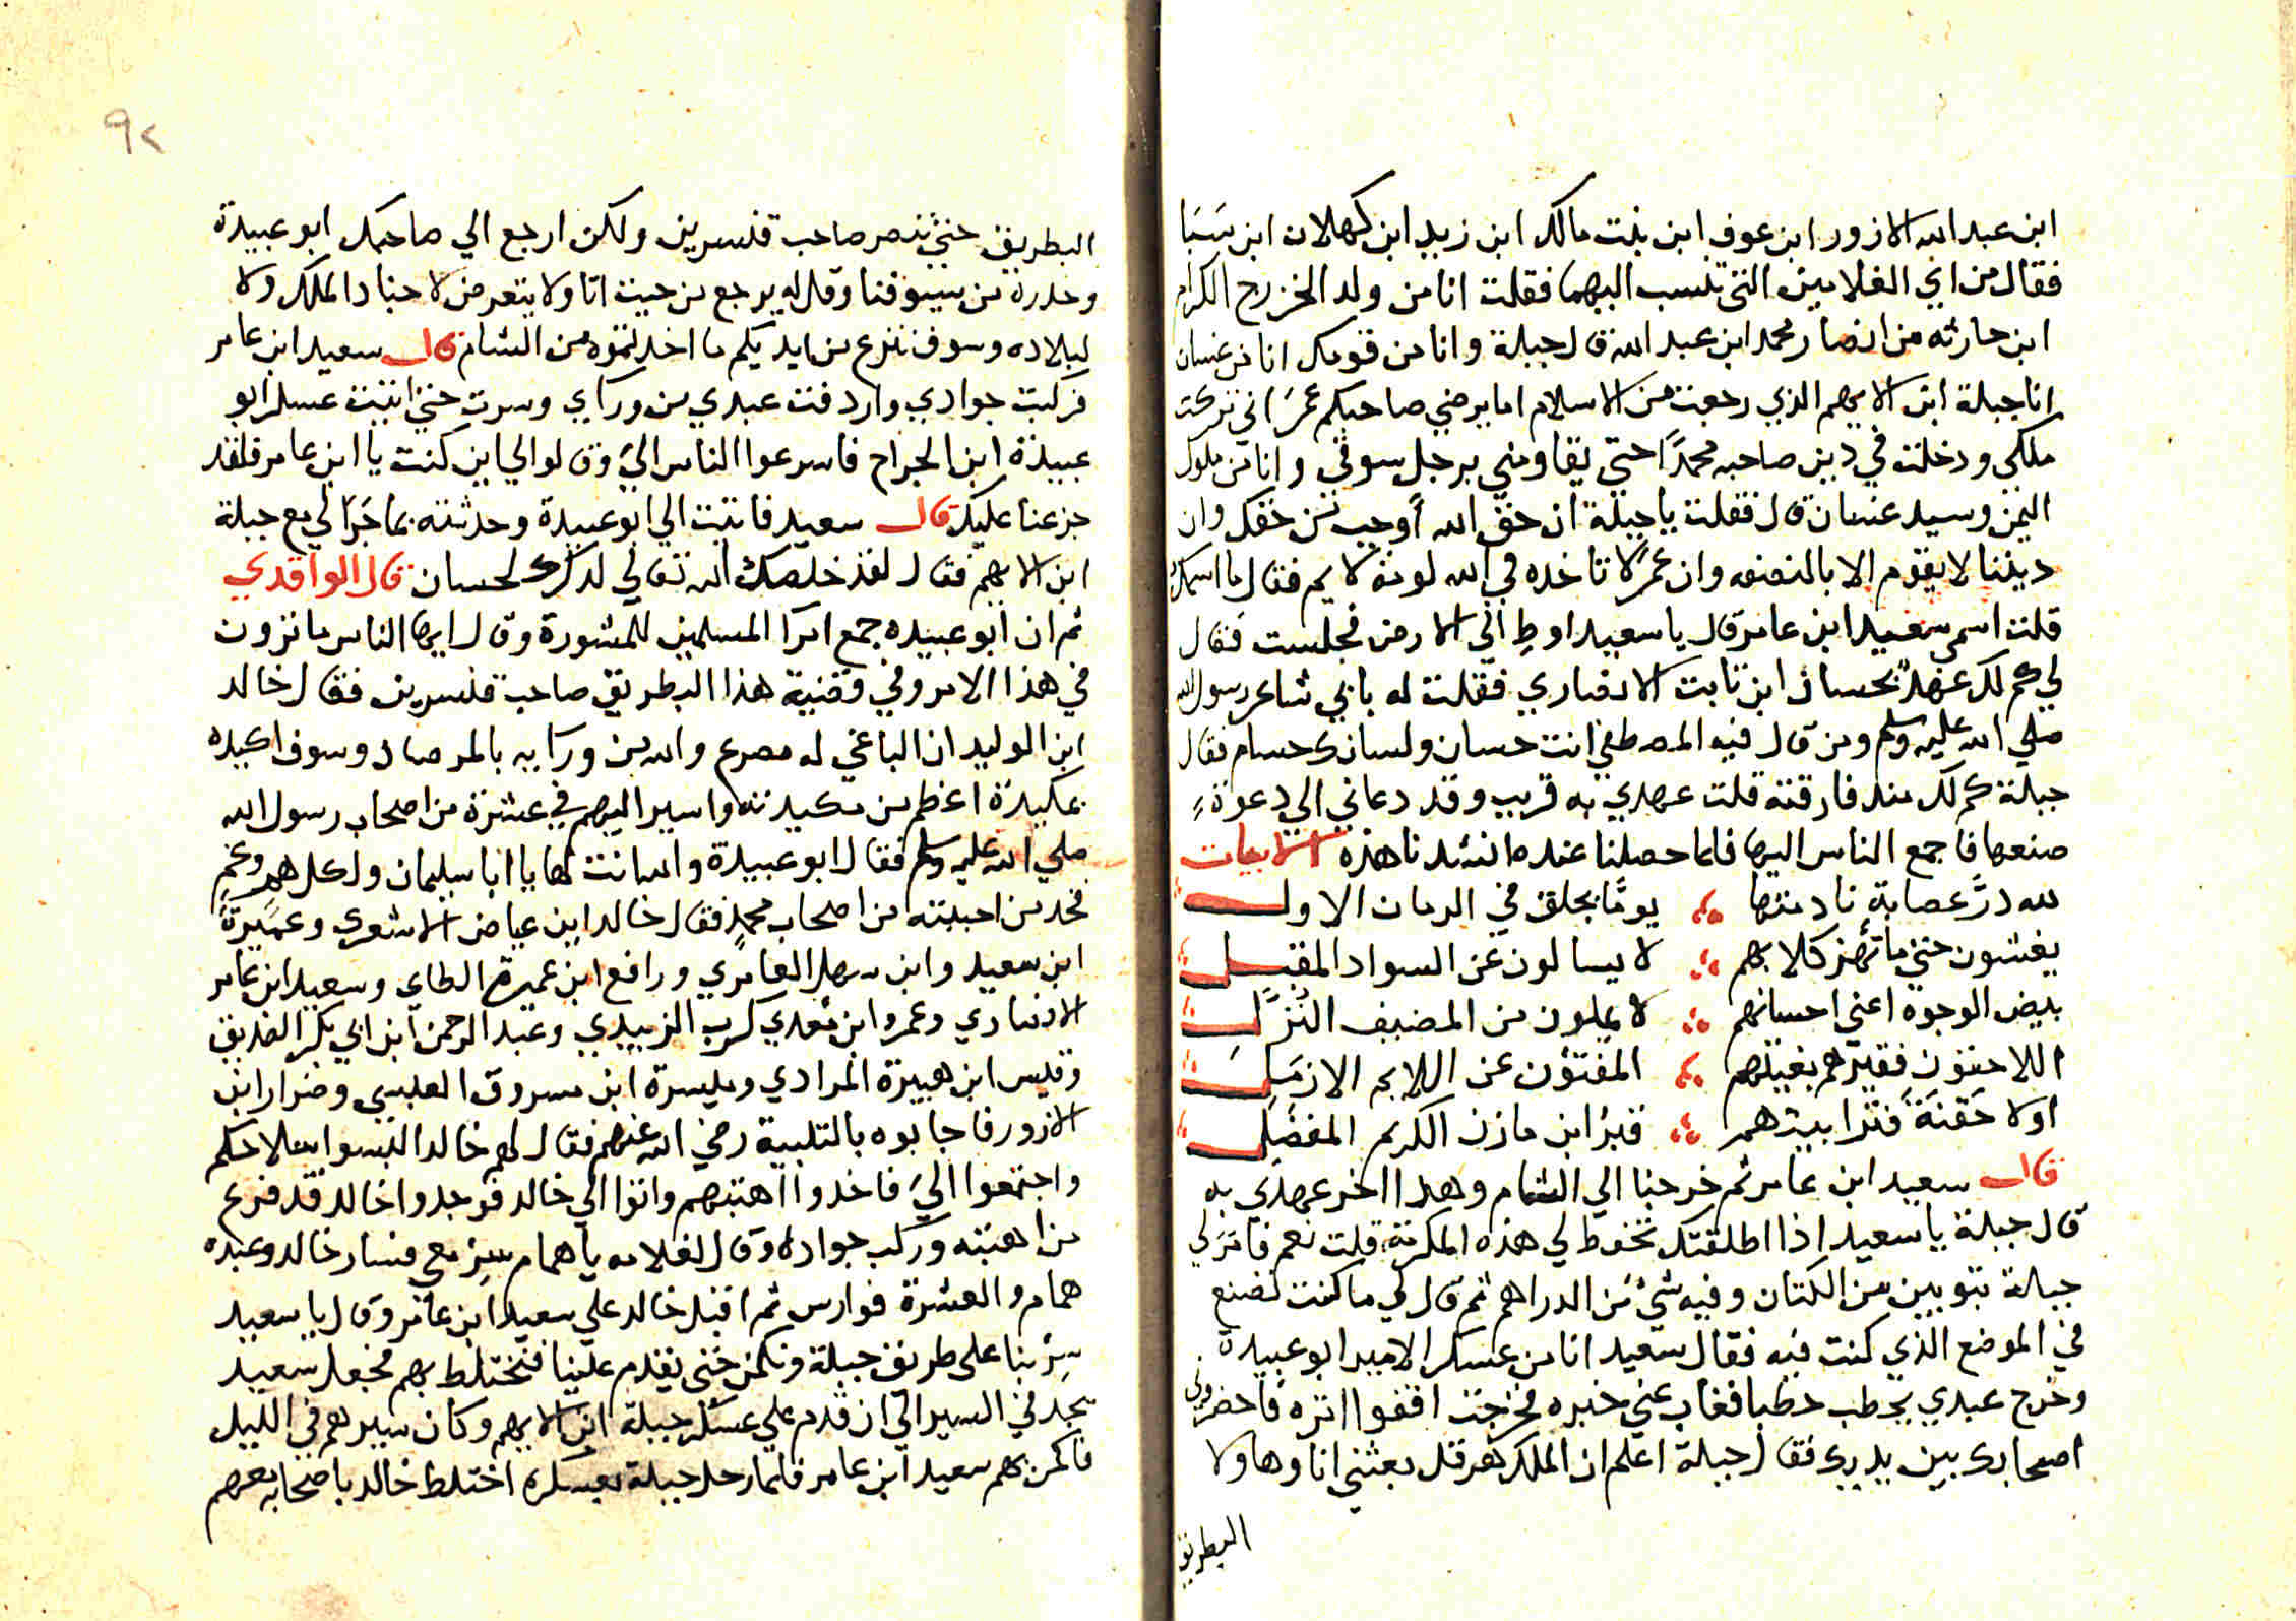 ابن عبد الله الازور ابن عوف ابن بنت مالك ابن زيد ابن كهلان ابن سَبَا
فقال من اي الغلامين التي تنسب اليهما فقلت انا من ولد الخزرج الكرام
ابن حارثه من انصار محمد ابن عبد الله قال جبلة وانا من قومك انا من غسان
انا جبلة ابن الايهم الذي رجعت من الاسلام اما يرضي صاحبكم عمرَ اني تركت
ملكي ودخلت في دين صاحبه محمدًا حتى يقاومني برجل سوقي وانا من ملوك
اليمن وسيد غسان قال فقلت يا جبلة ان حق الله أوجب من حقك وان
ديننا لا يقوم الا بالنصفه وان عمرً لا تاخده في الله لومة لايم فقال ما اسمك
قلت اسمي سعيد ابن عامر قال يا سعيد اوطِ الي الارض فجلست فقال
لي كم لك عهدٌ بحسان ابن ثابت الانصاري فقلت له يا بني شاعر رسول الله
صلي الله عليه وسلم ومن قال فيه المصطفي انت حسان ولسانك حسام فقال
جبلة كم لك منذ فارقته قلت عهدي به قريب وقد دعاني الي دعوةٍ
صنعها فاجمع الناس اليها فلما حصلنا عنده انشدنا هذه الابيات
لله درَّ عصابة نادمتها يومًا بجلق في الزمان الاول
يغشون حتي ما تهز كلابهم لا يسالون عن السواد المقبل
بيض الوجوه اعني احسانهم لا يملون من المضيف النُزَّل
اللاحقون فقيرهم بغنيهم المفتؤن عن اللابجه الازمَل
اولا حَفنَةَ فترا بيتهم قبرُ ابن مازن الكريم المفضَل
قال سعيد ابن عامر ثم خرجنا الي الشام وهدا اخر عهدي به
قال جبلة يا سعيد اذا اطلقتك تحفظ لي هذه المكرمة قلت نعم فامرَ لي
جبلة بثوبين من الكتان وفيه شيء من الدراهم ثم قال لي ما كنت تصنع
في الموضع الذي كنت فيه فقال سعيد انا من عسكر الامير ابو عبيدة
وخرج عبدي يحطب حطبا فغاب عني خبره فخرجت اقفوا اثره فاحضروني
اصحابك بين يديك فقال جبلة اعلم ان الملك هرقل بعثني انا وهاولا
البطريق
٩٢
البطريق حتي ننصر صاحب قنسرين ولكن ارجع الي صاحبك ابو عبيدة
وحدره من سيوفنا وقل له يرجع من حيث اتا ولا يتعرض لاجناد الملك ولا
لبلاده وسوف ننزع من ايديكم ما اخدتموه من الشام قال سعيد ابن عامر
فركبت جوادي واردفت عبدي من وراي وسرت حتي اتيت عسكر ابو
عبيدة ابن الجراح فاسرعوا الناس اليَّ وقالوا لي اين كنت يا ابن عامر فلقد
جزعنا عليك قال سعيد فاتيت الي ابو عبيدة وحدثته بما جَرَا لي مع جبلة
ابن الايهم فقال لقد خلصك الله تعالي لدكرك لحسان قال الواقدي
ثم ان ابو عبيده جمع امرا المسلمين للمشورة وقال ايها الناس ما ترون
في هذا الامر وفي قضية هذا البطريق صاحب قنسرين فقال خالد
ابن الوليد ان الباغي له مصرع والله من ورايه بالمرصاد وسوف اكيده
بمكيدة اعظم من مكيدته واسير اليهم في عشرة من اصحاب رسول الله
صلي الله عليه وسلم فقال ابو عبيدة والله انت لها يا ابا سليمان ولكل همٍ وغمٍ
فخد من احببته من اصحاب محمدٍ فقال خالد اين عياض الاشعري وعمَيرَةً
ابن سعيد وابن سهل العامري ورافع ابن عميرة الطاي وسعيد ابن عامر
الانصاري وعمرو ابن معدي كرب الزبيدي وعبد الرحمن ابن ابي بكر الصديق
وقيس ابن هبيرة المرادي وميسرة ابن مسروق العبسي وضرار ابن
الازور فاجابوه بالتلبية رضي الله عنهم فقال لهم خالد البسوا سلاحكم
واجتمعوا اليَّ فاخدوا اهبتهم واتوا الي خالد فوجدوا خالد قد فرغ
من اهبته وركب جواده وقال لغلامه يا همام سِرْ معي فسار خالد وعبده
همام والعشرة فوارس ثم اقبل خالد علي سعيد ابن عامر وقال يا سعيد
سِرْ بنا على طريق جبلة ونكمن حتى يقدم علينا فنختلط بهم فجعل سعيد
يجد في السير الي ان قدم علي عسكر جبلة ابن الايهم وكان سيرهم في الليل
فاكمن بهم سعيد ابن عامر فلما رحل جبلة بعسكره اختلط خالد باصحابه معهم